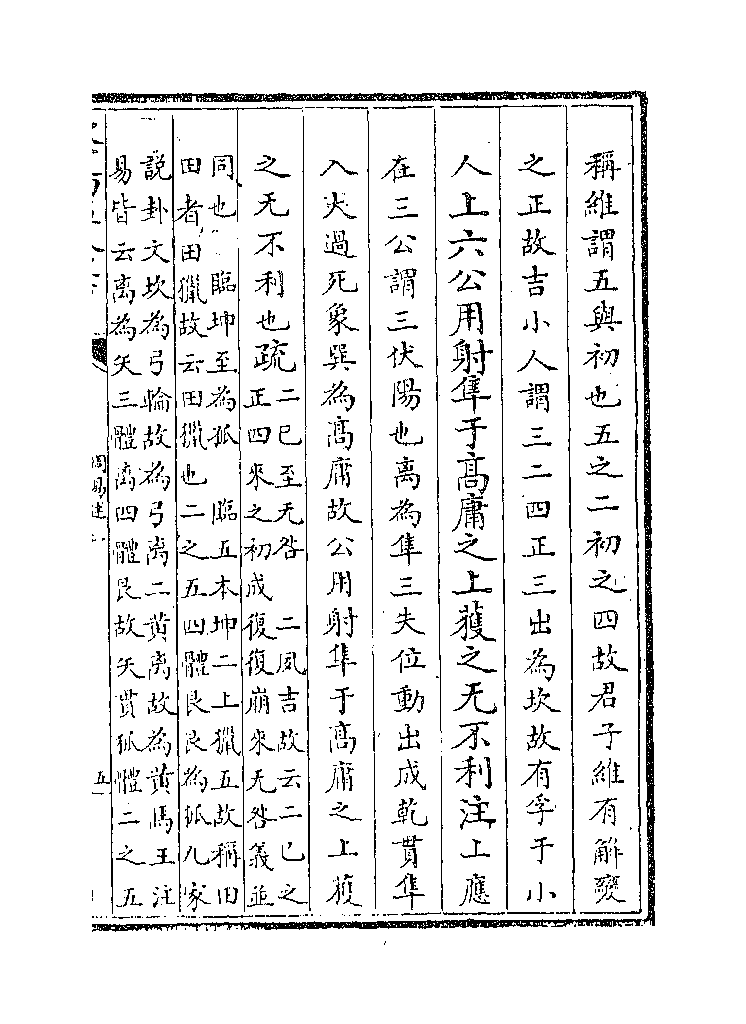 稱維謂五與初也五之二初之四故君子維有解變
之正故吉小人謂三二四正三出為坎故有孚于小
人上六公用射隼于高庸之上獲之无不利注上應
在三公謂三伏陽也离為隼三失位動出成乾貫隼
入大過死象巽為高庸故公用射隼于高庸之上獲
之无不利也疏二已至无咎 二夙吉故云二已之
正四來之初成復復崩來无咎義並
同也 臨坤至為狐 臨五本坤二上獵五故稱田
田者田獵故云田獵也二之五四體艮艮為狐九家
說卦文坎為弓輪故為弓离二黃离故為黃馬王注
易皆云离為矢三體离四體艮故矢貫狐體二之五
周易述
五